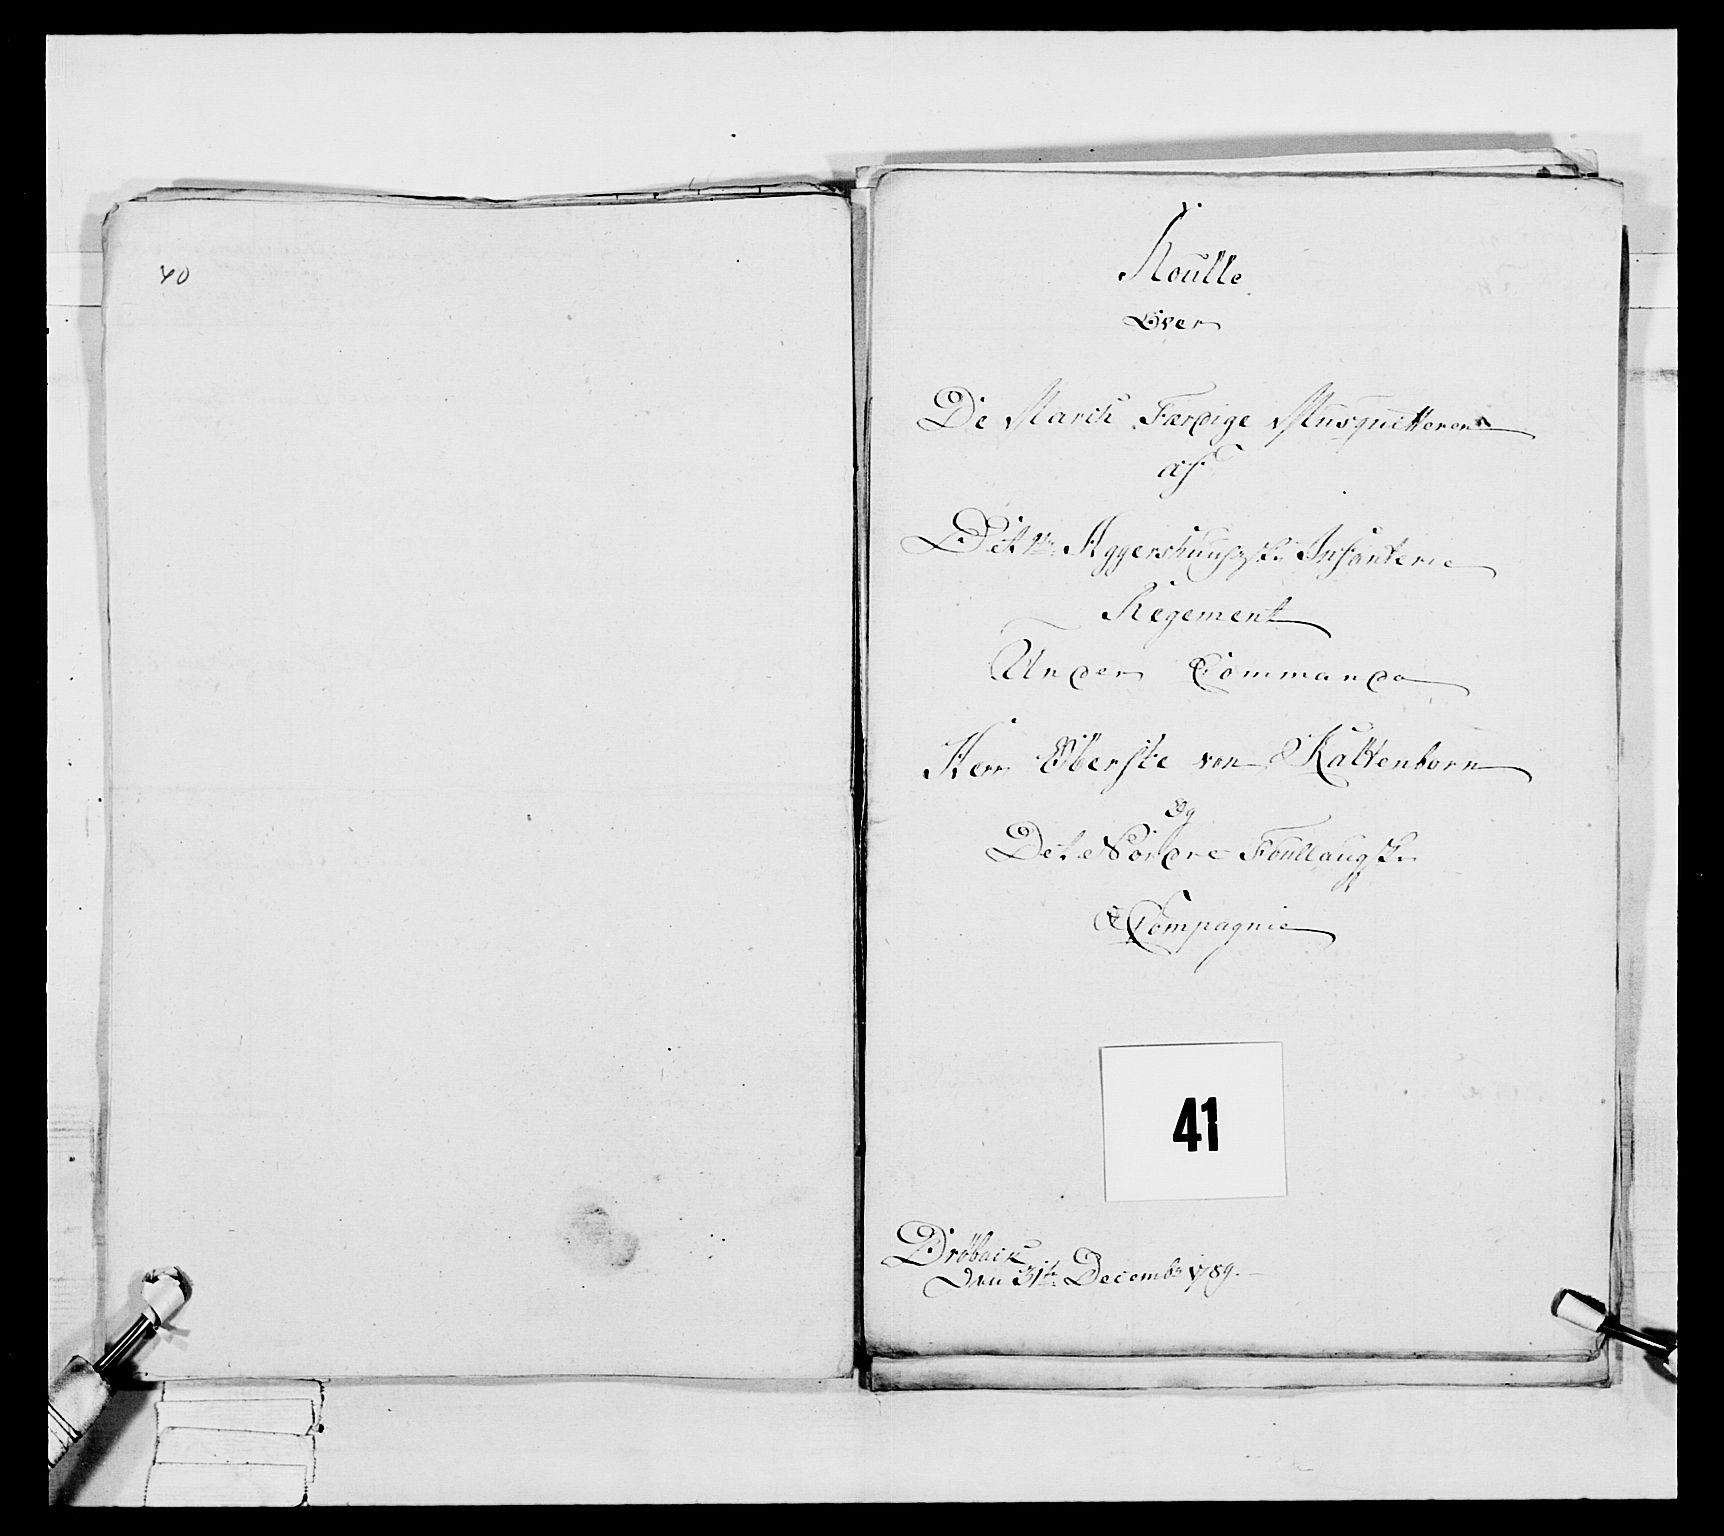 40
Roulle
Over
De March Færdige Musquetterer
af
Det 1te Aggershuusiske Infanterie
Regement
Under Commando
Herr Öberste von Kaltenborn
Og
Det Nordre Foullougske
Compagnie
41
Dröback
Den 31te Decembr 1789.